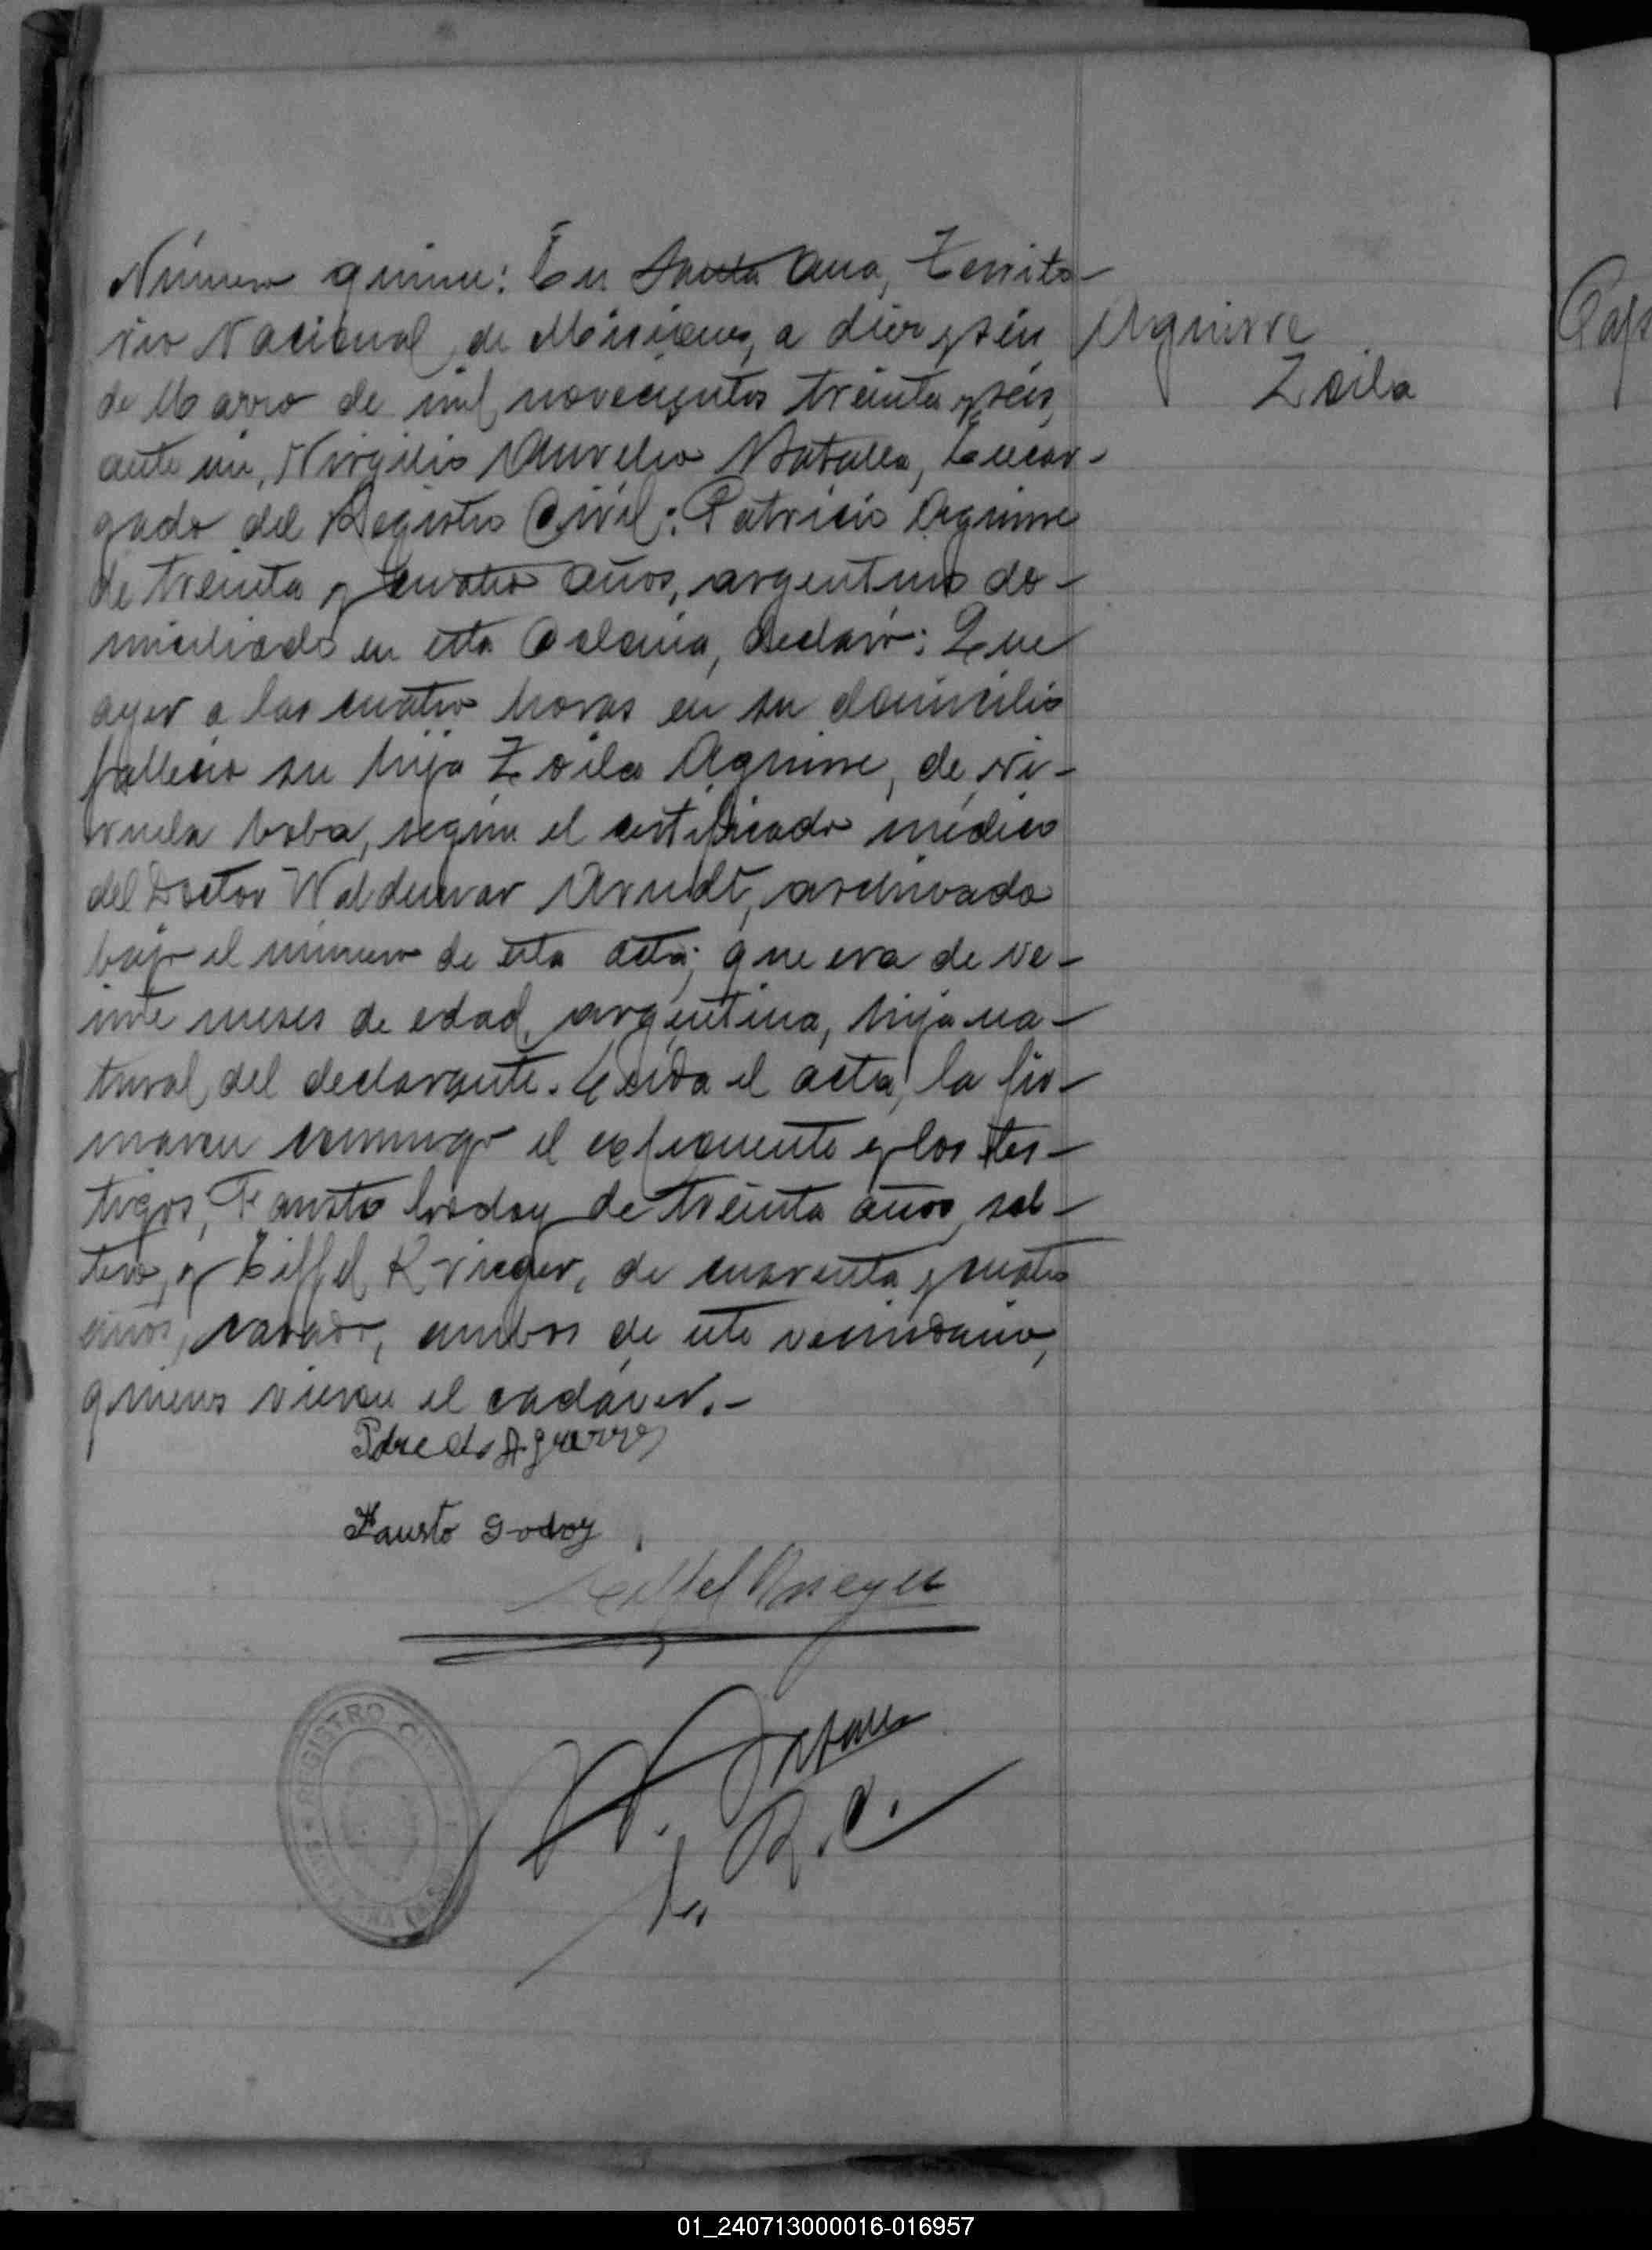 Número quince: En Santa Ana, Territo-
rio Nacional de Misiones, a diez y séis
de Marzo de mil novecientos treinta y séis,
ante mi, Virgilio Aurelio Batalla, Encar-
gado del Registro Civil: Patricio Aguirre
de treinta y cuatro años, argentino do-
miciliado en esta Colonia, declaró: Que
ayer a las cuatro horas en su domicilio
falleció su hija Zoila Aguirre, de vi-
ruela boba, según el certificado médico
del Doctor Waldemar Arndt, archivado
bajo el número de ésta acta; que era de ve-
inte meses de edad, argentina, hija na-
tural del declarante. Leída el acta, la fir-
maron conmigo el exponente y los tes-
tigos, Fausto Godoy de treinta años, sol-
tero, y Eiffel Krieger, de cuarenta y cuatro
años, casado, ambos de éste vecindario,
quienes vieron el cadáver.-
Aguirre
Zoila
Fausto Godoy
Eiffel Krieger
V. Batalla
R.C.
REGISTRO
01_240713000016-016957